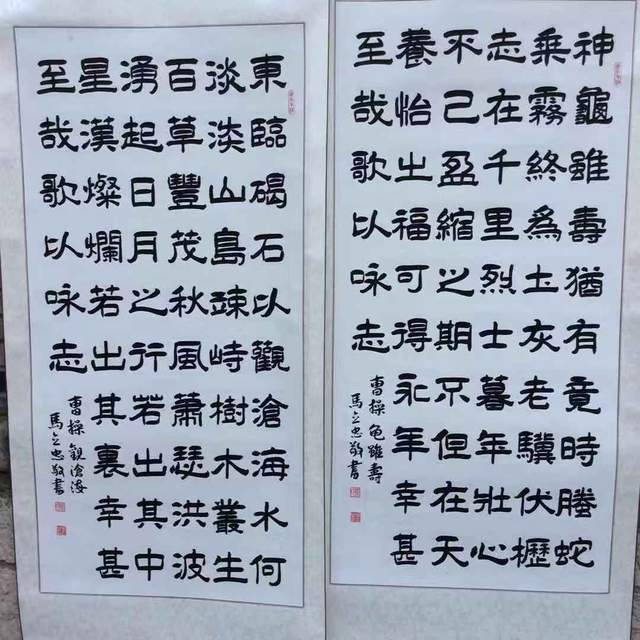 神龜雖壽猶有竟時騰蛇
乘霧終爲土灰老驥伏櫪
志在千里烈士暮年壯心
不己盈縮之期不但在天
養怡之福可得永年幸甚
至哉歌以咏志
曹操 龟雖壽
馬立忠敬書
東臨碣石以觀滄海水何
淡淡山島竦峙樹木叢生
百草豐茂秋風蕭瑟洪波
湧起日月之行若出其中
星漢燦爛若出其裏幸甚
至哉歌以咏志
曹操 觀滄海
馬立忠敬書